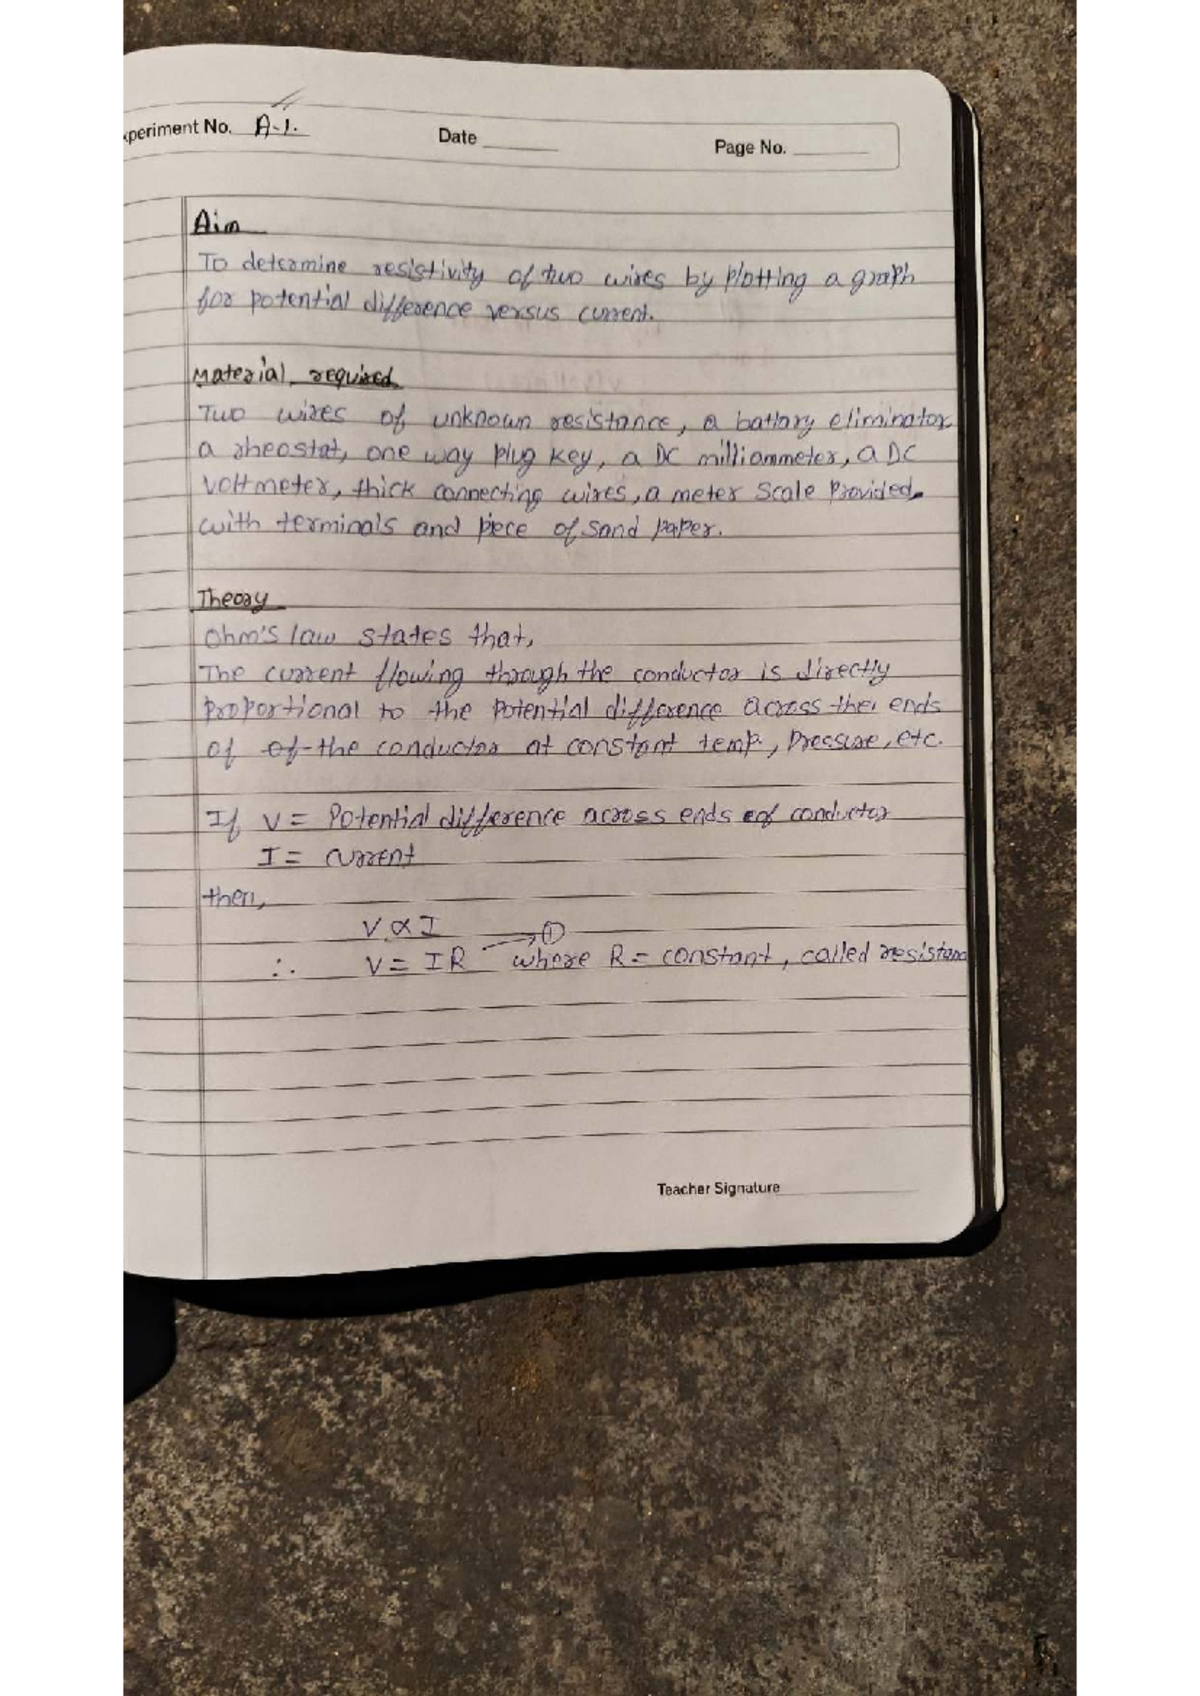 xperiment No. A-1.
Date
Page No.
Aim
To determine resistivity of two wires by plotting a graph
for potential difference versus current.
Material required
Two wires of unknown resistance, a battary eliminator
a rheostat, one way plug key, a DC milliammeter, a DC
voltmeter, thick connecting wires, a meter scale provided
with terminals and piece of sand paper.
Theory
Ohm's law states that,
The current flowing through the conductor is directly
proportional to the potential difference across the ends
of of the conductor at constant temp., pressure, etc.
If V = Potential difference across ends of conductor
I = current
then,
V ∝ I
∴ V = IR → ① where R = constant, called resistanc
Teacher Signature